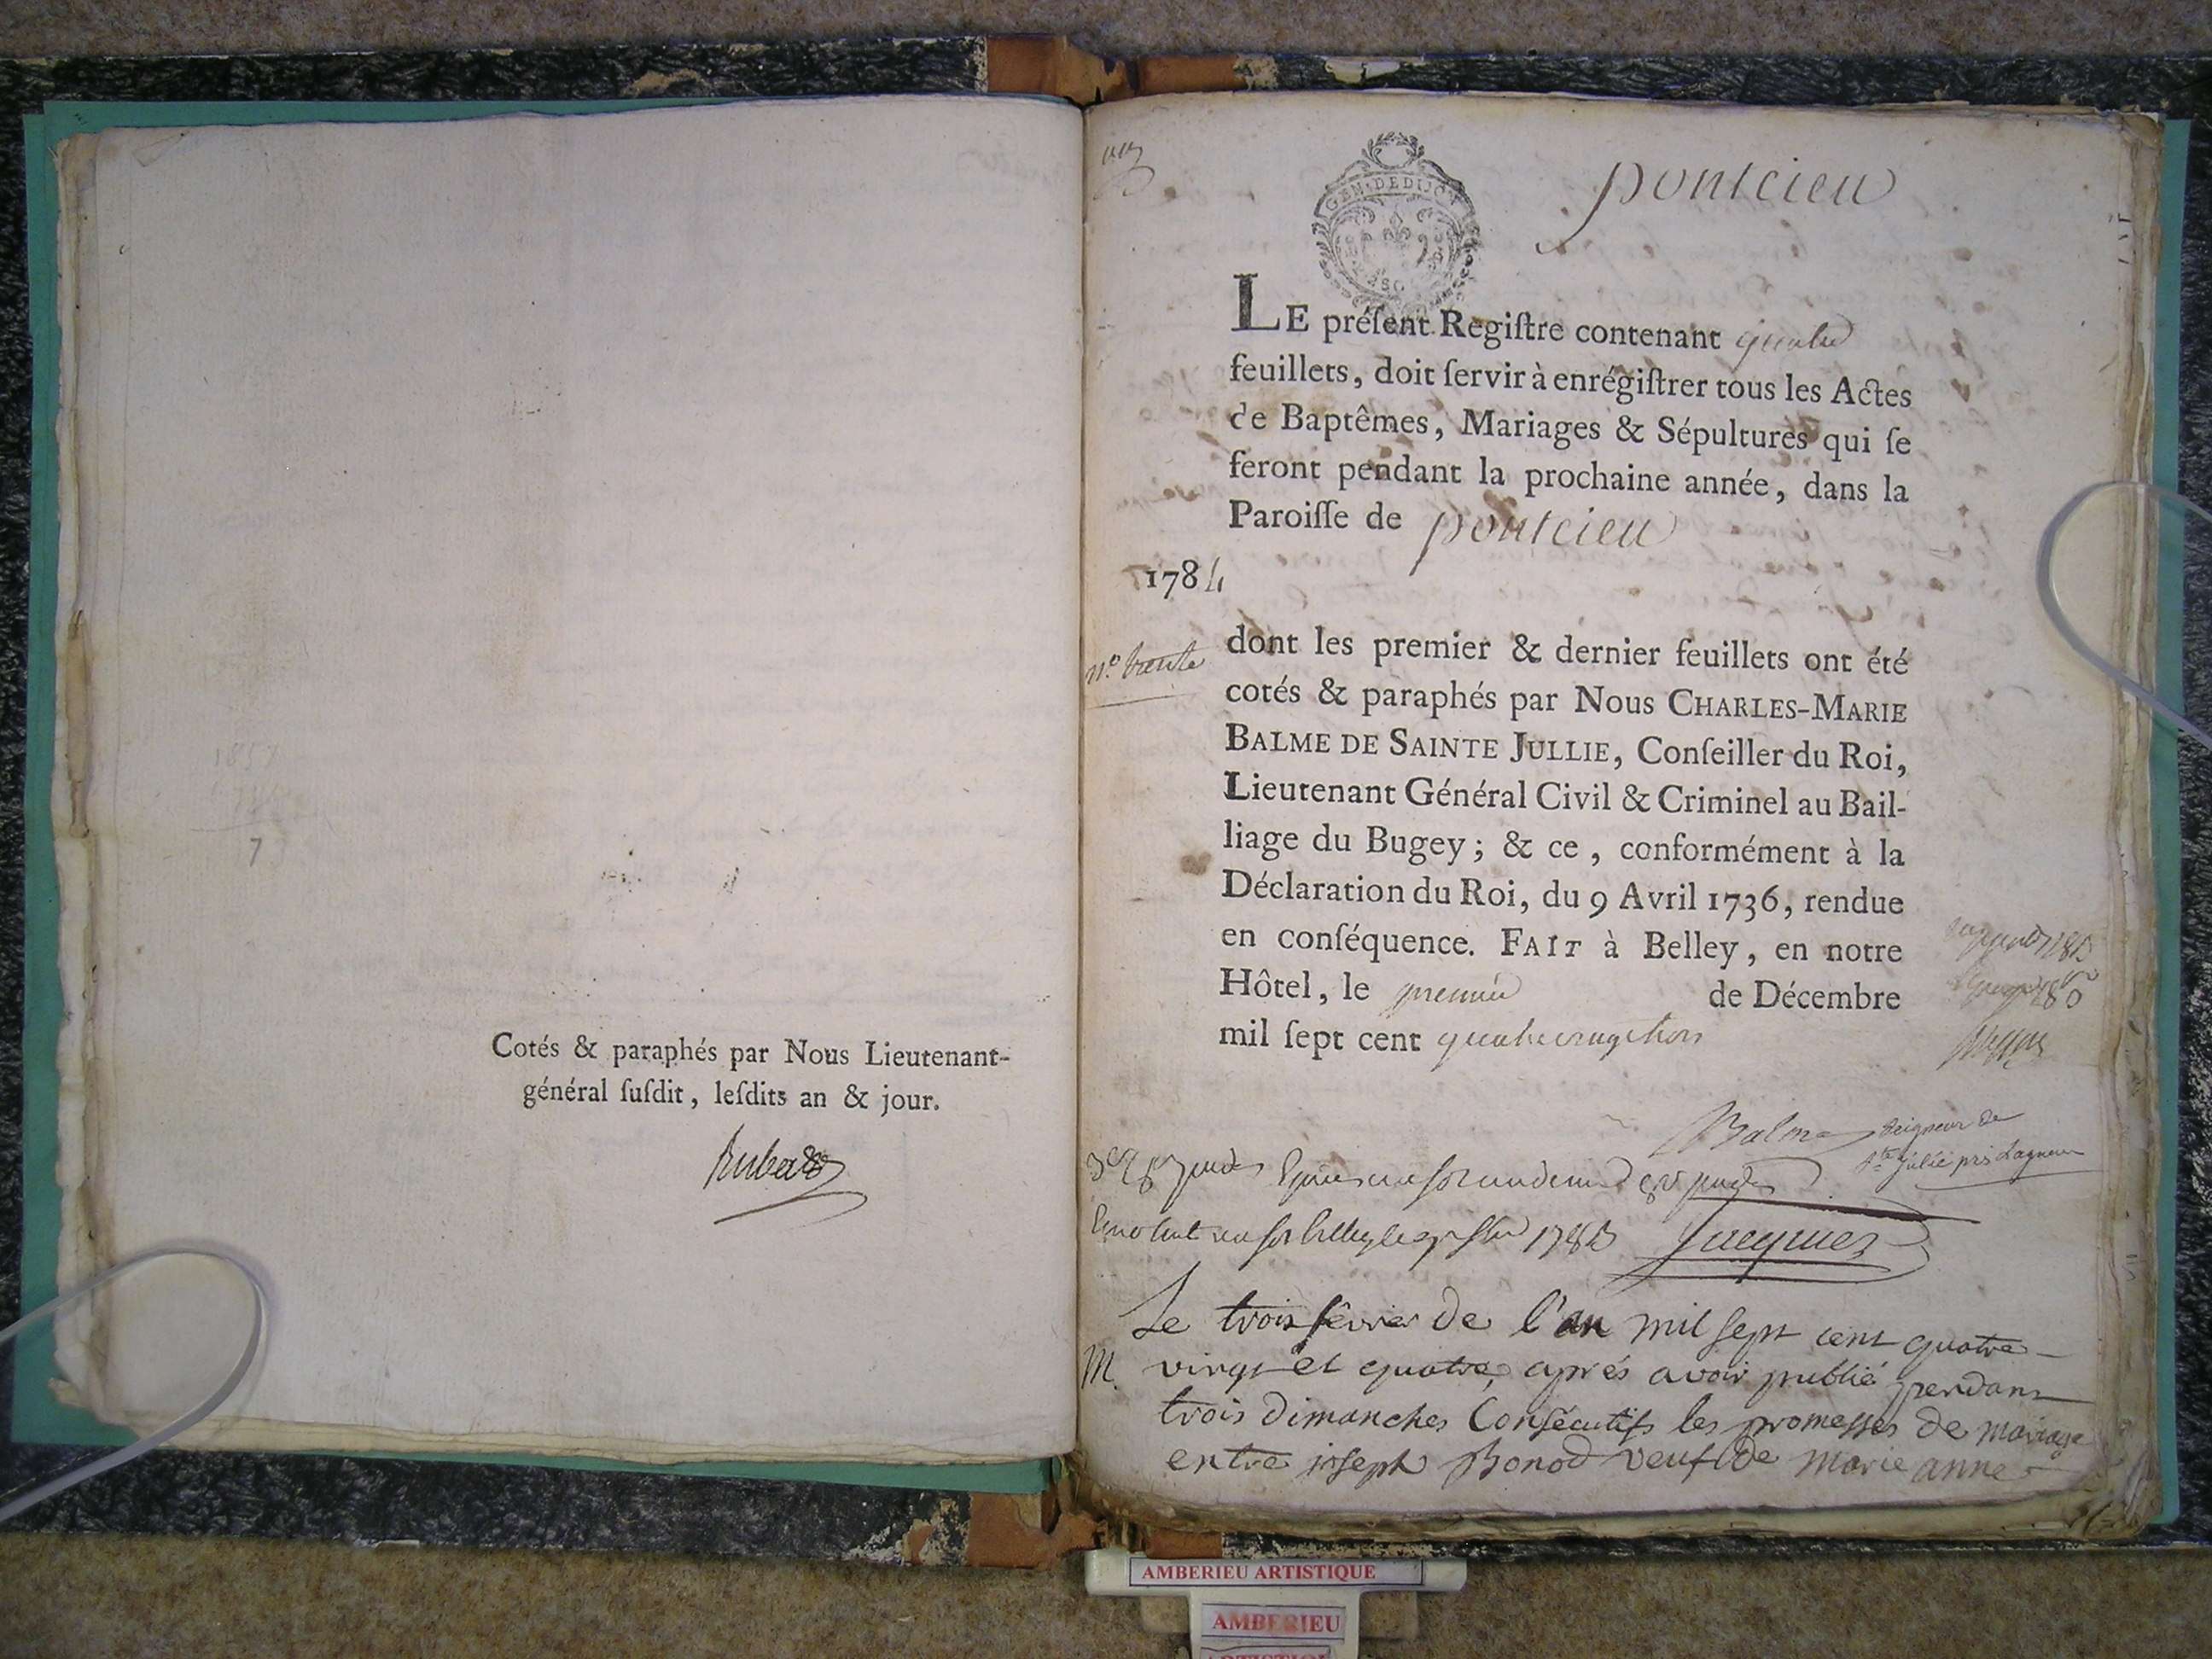 Cotés & paraphés par Nous Lieutenant-
général ſuſdit, leſdits an & jour.
7
GEN. DE DIJON
pontcieu
LE préſent Regiſtre contenant quatre
feuillets, doit ſervir à enrégiſtrer tous les Actes
de Baptêmes, Mariages & Sépultures qui ſe
feront pendant la prochaine année, dans la
Paroiſſe de pontcieu
1784
n.º trente
dont les premier & dernier feuillets ont été
cotés & paraphés par Nous CHARLES-MARIE
BALME DE SAINTE JULLIE, Conſeiller du Roi,
Lieutenant Général Civil & Criminel au Bail-
liage du Bugey ; & ce , conformément à la
Déclaration du Roi, du 9 Avril 1736, rendue
en conſéquence. FAIT à Belley, en notre
Hôtel, le premier de Décembre
mil ſept cent quatrevingttrois
Balme Seigneur de
Ste Julie près Lagneu
1783 Jacquier
Le trois fevrier de l'an mil sept cent quatre
M. vingt et quatre, après avoir publié pendant
trois dimanches Consécutifs les promesses de mariage
entre joseph Bonod veuf de marie anne
AMBERIEU ARTISTIQUE
AMBERIEU
ARTISTIQUE